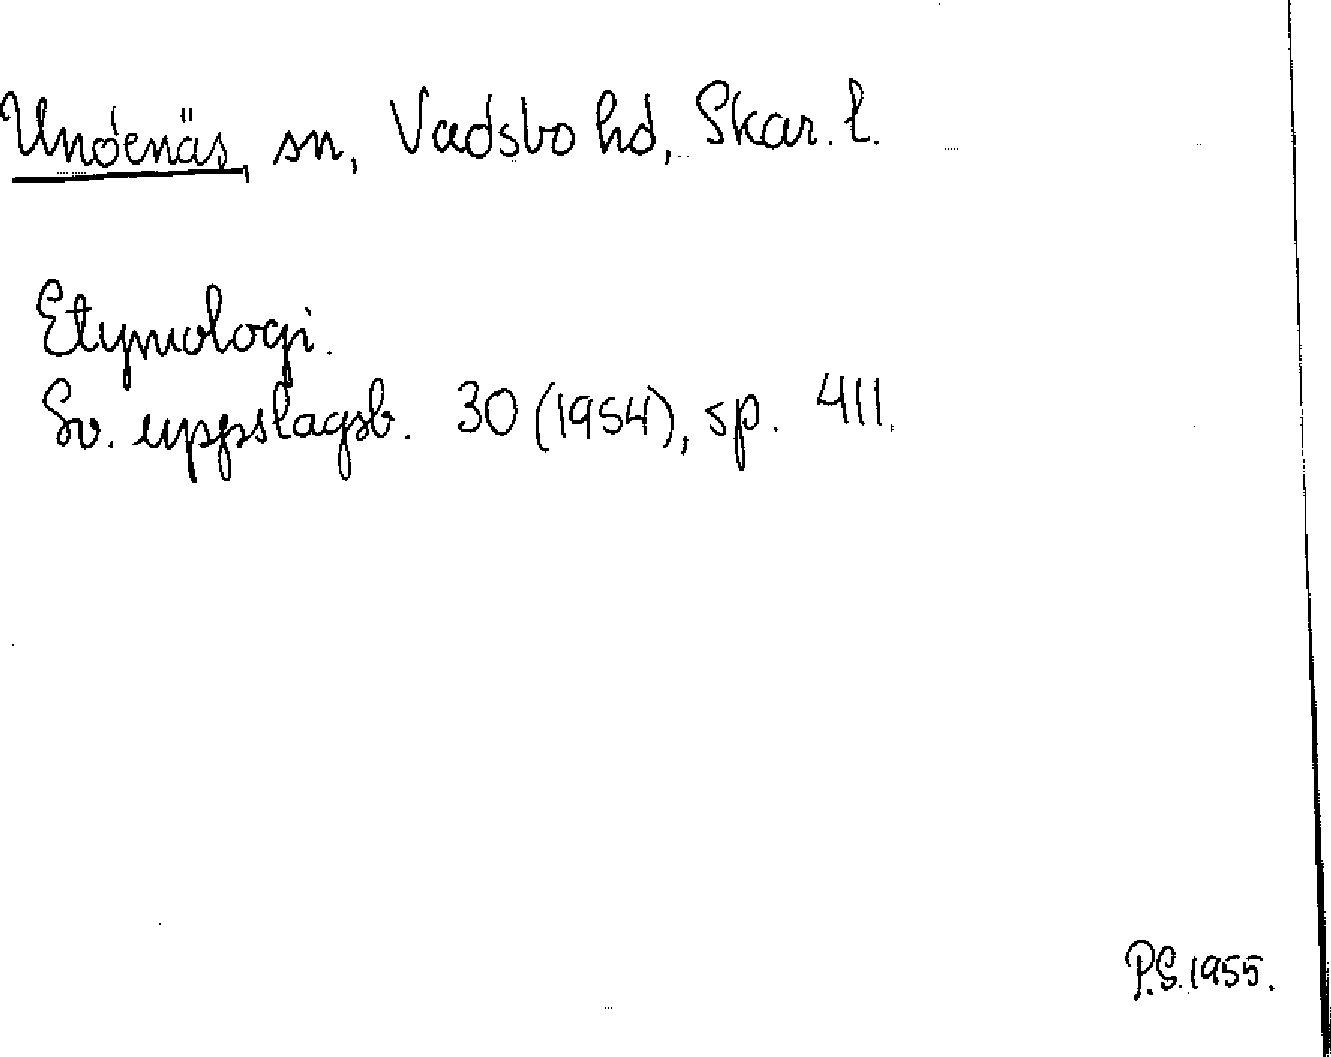 Undenäs, sn, Vadsbo hd, Skar. l.
Etymologi.
Sv. uppslagsb. 30 (1954), sp. 411.
P.S. 1955.